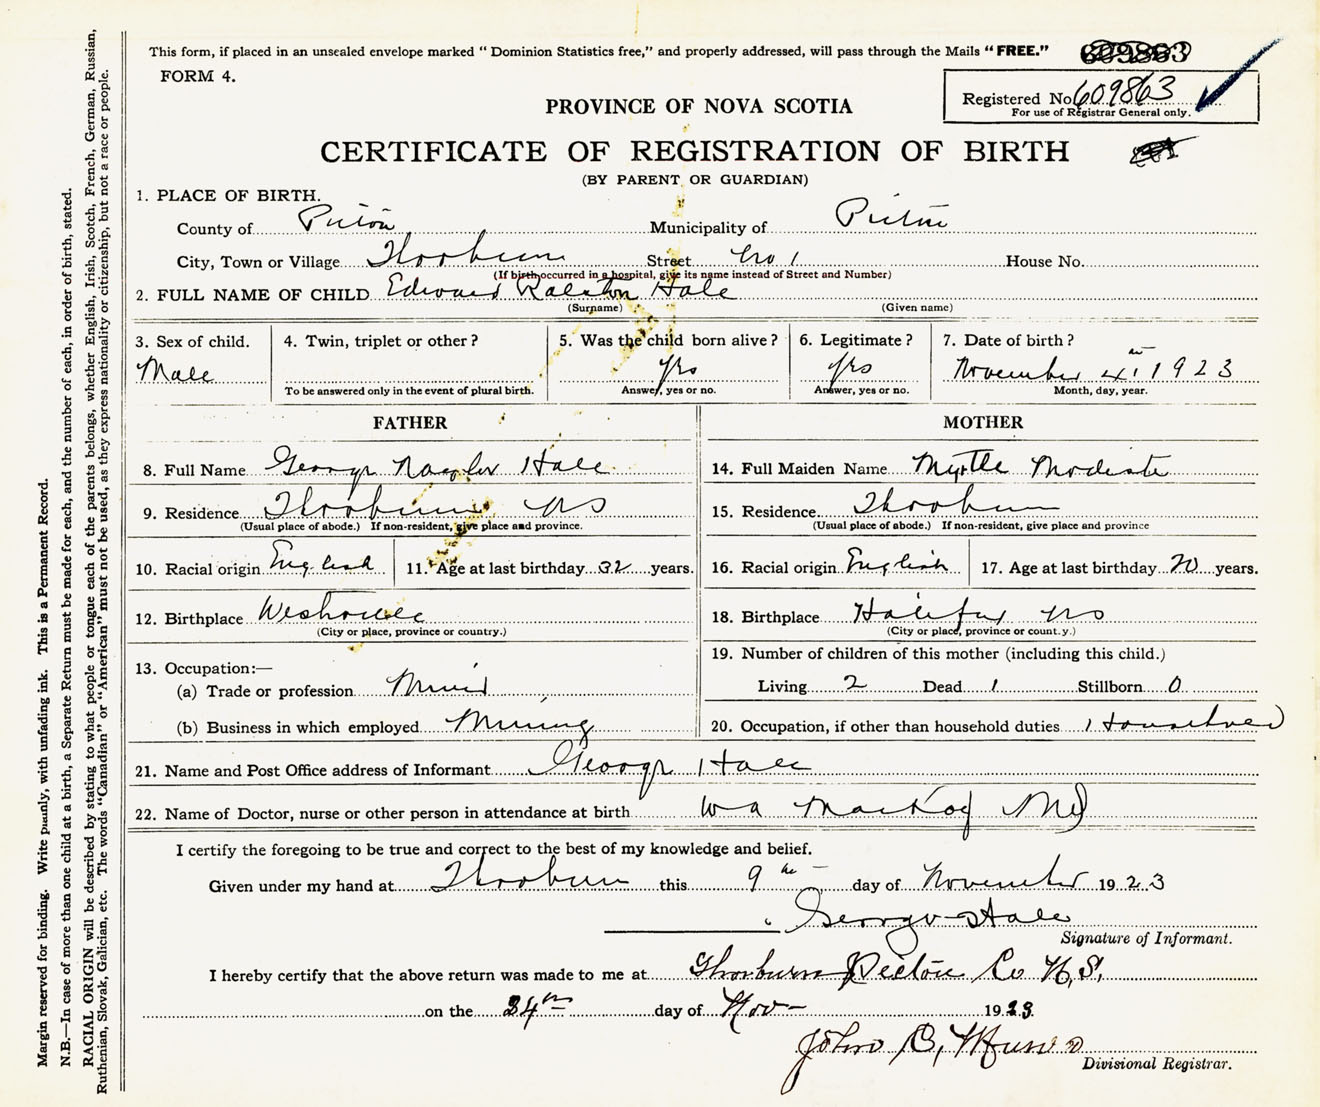 This form, if placed in an unsealed envelope marked "Dominion Statistics free," and properly addressed, will pass through the Mails "FREE." 609863
FORM 4.
Registered No. 609863
For use of Registrar General only.
PROVINCE OF NOVA SCOTIA
CERTIFICATE OF REGISTRATION OF BIRTH
(BY PARENT OR GUARDIAN)
1. PLACE OF BIRTH.
County of Pictou Municipality of Pictou
City, Town or Village Thorburn Street No 1 House No.
(If birth occurred in a hospital, give its name instead of Street and Number)
2. FULL NAME OF CHILD Edward Ralston Hale
(Surname) (Given name)
3. Sex of child. 4. Twin, triplet or other? 5. Was the child born alive? 6. Legitimate? 7. Date of birth?
Male Yes Yes November 4th 1923
To be answered only in the event of plural birth. Answer, yes or no. Answer, yes or no. Month, day, year.
FATHER MOTHER
8. Full Name George Hale 14. Full Maiden Name Myrtle Modiste
9. Residence Thorburn NS 15. Residence Thorburn
(Usual place of abode.) If non-resident, give place and province. (Usual place of abode.) If non-resident, give place and province
10. Racial origin English 11. Age at last birthday 32 years. 16. Racial origin English 17. Age at last birthday 20 years.
12. Birthplace Westville 18. Birthplace Halifax NS
(City or place, province or country.) (City or place, province or count.y.)
13. Occupation:— 19. Number of children of this mother (including this child.)
(a) Trade or profession Miner Living 2 Dead 1 Stillborn 0
(b) Business in which employed Mining 20. Occupation, if other than household duties
21. Name and Post Office address of Informant George Hale
22. Name of Doctor, nurse or other person in attendance at birth W A MacKay MD
I certify the foregoing to be true and correct to the best of my knowledge and belief.
Given under my hand at Thorburn this 9th day of November 1923
George Hale
Signature of Informant.
I hereby certify that the above return was made to me at Thorburn Pictou Co N.S.
on the 24th day of Nov 1923.
John C. Munro
Divisional Registrar.
Margin reserved for binding. Write plainly, with unfading ink. This is a Permanent Record.
N.B.—In case of more than one child at a birth, a Separate Return must be made for each, and the number of each, in order of birth, stated.
RACIAL ORIGIN will be described by stating to what people or tongue each of the parents belongs, whether English, Irish, Scotch, French, German, Russian,
Ruthenian, Slovak, Galician, etc. The words "Canadian" or "American" must not be used, as they express nationality or citizenship, but not a race or people.